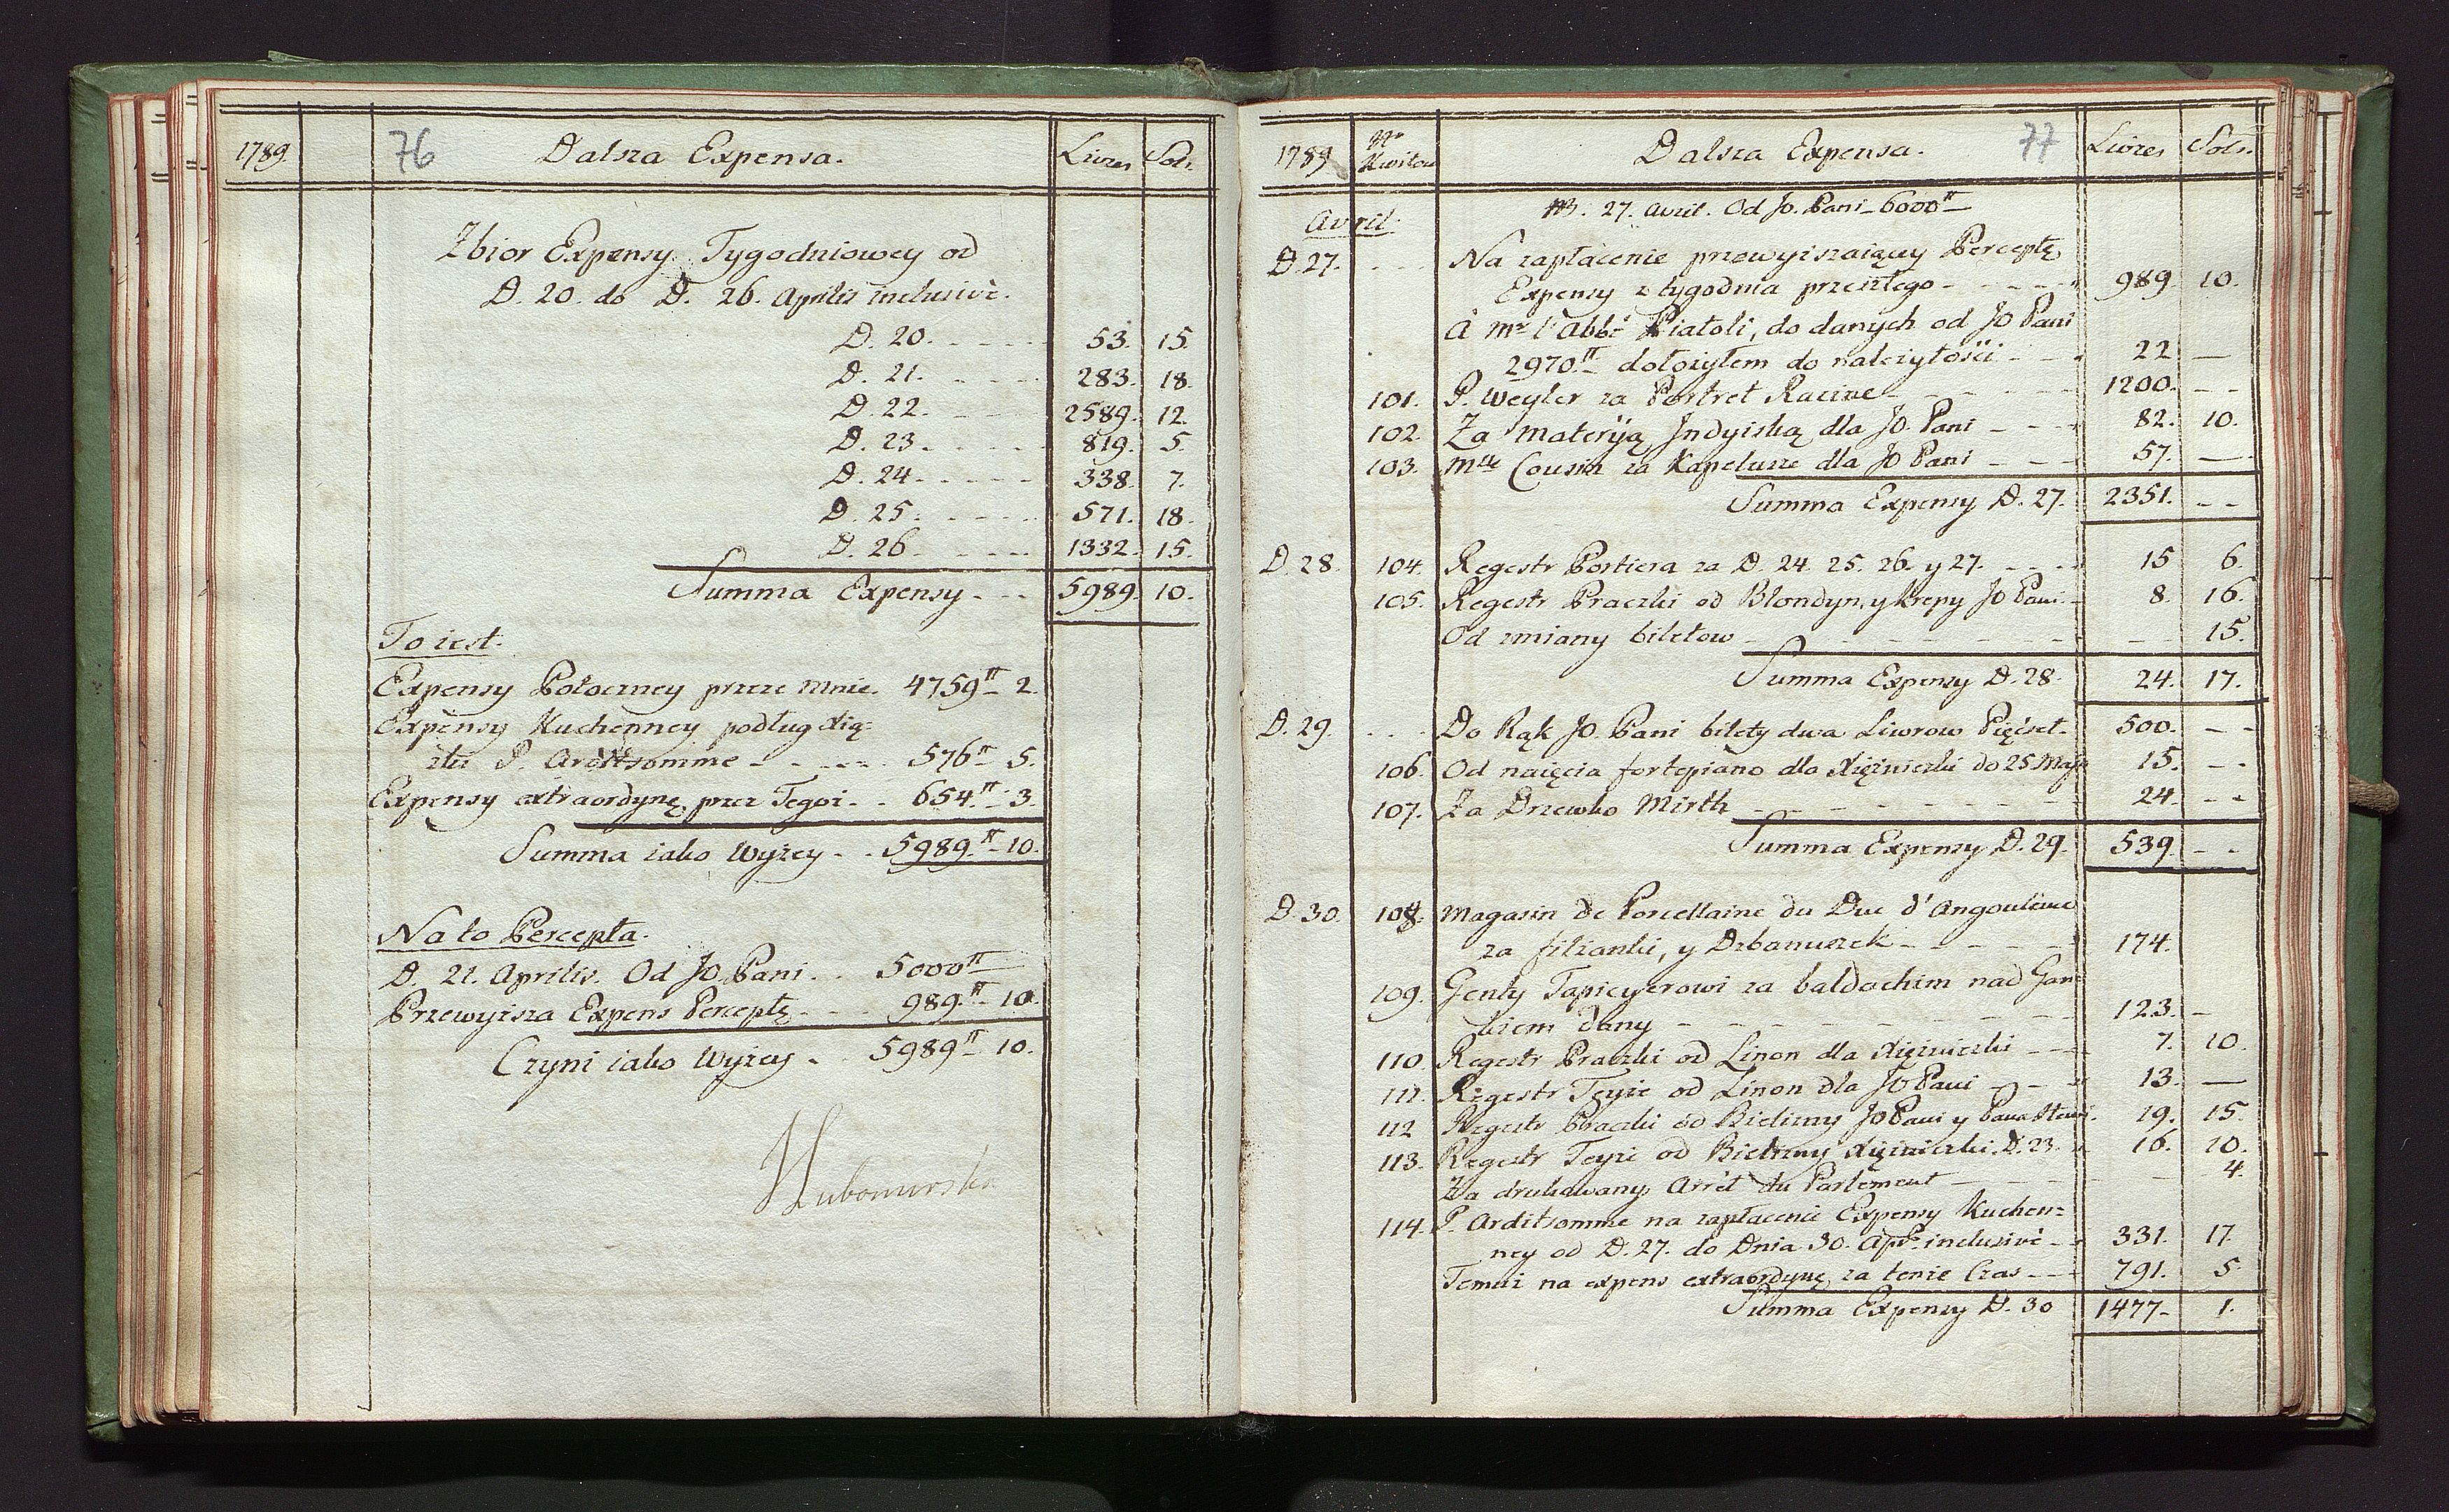 1789. 76 Dalsza Expensa. Livres Sols.
Zbior Expensy Tygodniowey od
D. 20. do D. 26. Aprilis inclusivè.
D. 20. 53. 15.
D. 21. 283. 18.
D. 22. 2589. 12.
D. 23. 819. 5.
D. 24. 338. 7.
D. 25. 571. 18.
D. 26. 1332. 15.
Summa Expensy 5989. 10.
To iest.
Expensy Potoczney przeze mnie. 4759tt 2.
Expensy Kuchenney podług Xią:
żki P. Arditsomme 576tt 5.
Expensy extraordynę przez Tegoż 654tt 3.
Summa iako Wyżey 5989tt 10.
Na to Percepta.
D. 21. Aprilis. Od JO. Pani 5000tt
Przewyisza Expens Perceptę 989tt 10.
Czyni iako Wyżey 5989tt 10.
Lubomirska
1789 Nr Kwitow Dalsza Expensa. 77 Livres Sols.
Avril. NB. 27. Avril. Od JO. Pani 6000tt
D. 27. Na zapłacenie przewyiszaiącey Perceptę
Expensy z tygodnia przeszłego 989. 10.
A Mr l'Abbé Piatoli, do danych od JO Pani
2970tt dołożyłem do należytości 22 —
101. P. Weyler za Portret Racine 1200. --
102. Za Materyą Indyiską dla JO Pani 82. 10.
103. Mlle Cousin za Kapelusze dla JO Pani 57. —
Summa Expensy D. 27. 2351. --
D. 28. 104. Regestr Portiera za D. 24. 25. 26. y 27. 15 6.
105. Regestr Praczki od Blondyn, y krepy JO Pani 8. 16.
Od zmiany biletow — 15.
Summa Expensy D. 28. 24. 17.
D. 29. Do Rąk JO. Pani bilety dwa Liwrow Pięćset. 500. --
106. Od naięcia fortepiano dla Xiężniczki do 25 Maja 15. --
107. Za Drzewko Mirth 24. --
Summa Expensy D. 29. 539. --
D. 30. 108. Magasin de Porcellaine du Duc d'Angoulême
za filiżanki, y Dzbanuszek 174.
109. Genty Tapicyerowi za baldachim nad Gan:
kiem dany 123. -
110. Regestr Praczki od Linon dla Xiężniczki 7. 10.
111. Regestr Teyże od Linon dla JO Pani 13. —
112 Regestr Praczki od Bielizny JO Pani y Pana 19. 15.
113. Regestr Teyże od Bielizny Xiężniczki D. 23. 16. 10.
Za drukowany Arrêt du Parlement — 4.
114. P. Arditsomme na zapłacenie Expensy Kuchen:
ney od D. 27. do Dnia 30. Apr. inclusivè 331. 17.
Temuż na expens extraordynę za tenże Czas 791. 5
Summa Expensy D. 30 1477. 1.